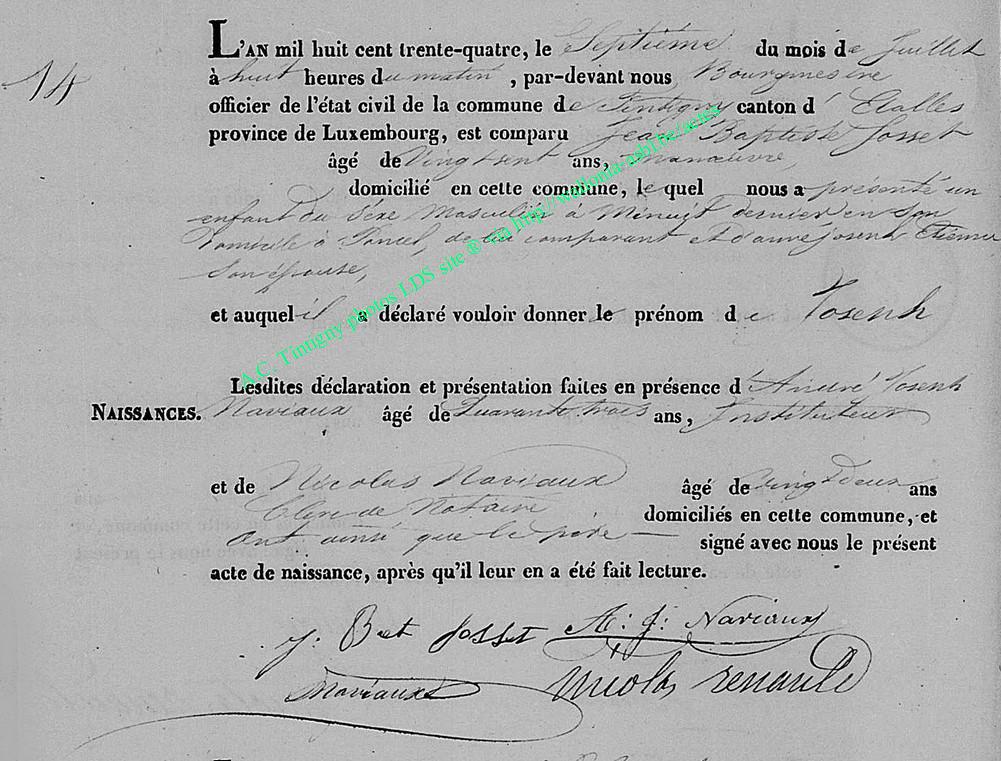 14
L'AN mil huit cent trente-quatre, le Septième du mois de Juillet
à huit heures du matin, par-devant nous Bourgmestre
officier de l'état civil de la commune de Tintigny canton d'Etalles
province de Luxembourg, est comparu Jean Baptiste Josset
âgé de vingt sept ans, manœuvre
domicilié en cette commune, le quel nous a présenté un
enfant du Sexe Masculin à Minuit dernier en son
Domicile à Poncel, de lui comparant et d'anne joseph Etienne
Son épouse,
et auquel il a déclaré vouloir donner le prénom de Joseph
Lesdites déclaration et présentation faites en présence d'André Joseph
NAISSANCES. Naviaux âgé de Quarante trois ans, Instituteur
et de Nicolas Naviaux âgé de vingt deux ans
Clerc de Notaire domiciliés en cette commune, et
ont ainsi que le père — signé avec nous le présent
acte de naissance, après qu'il leur en a été fait lecture.
J. Bat Josset A: J: Naviaux
Naviaux Nicolas
A.C. Tintigny photos LDS site ® via http://wallonia-asbl.be/actes